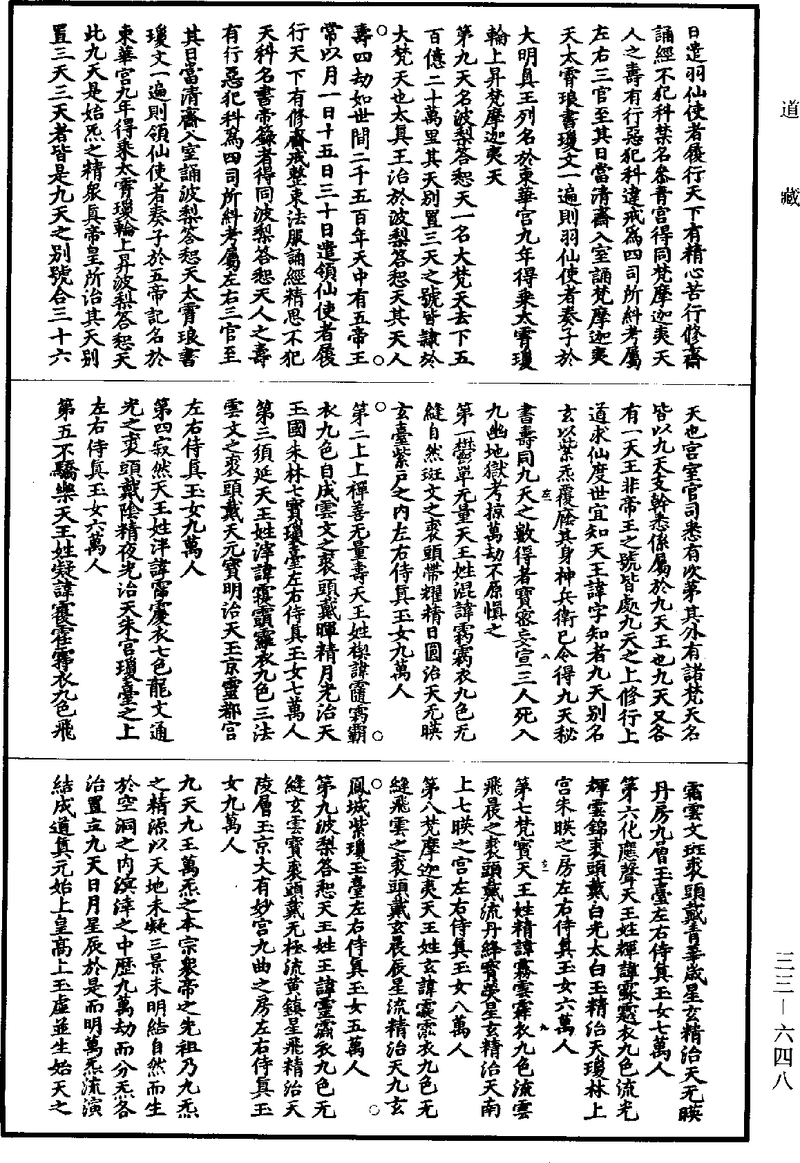 道藏
三三—六四八
日遣羽仙使者履行天下有精心苦行修齋
誦經不犯科禁名奏青宮得同梵摩迦夷天
人之壽有行惡犯科違戒為四司所糾考屬
左右三官至其日當清齋入室誦梵摩迦夷
天太霄琅書瓊文一遍則羽仙使者奏子於
大明真王列名於東華宮九年得乘太霄瓊
輪上昇梵摩迦夷天
第九天名波梨答惒天一名大梵天去下五
百億二十萬里其天別置三天之號皆隸於
大梵天也太真王治於波梨答惒天其天人
壽四劫如世間二千五百年天中有五帝王
常以月一日十五日三十日遣領仙使者履
行天下有修齋戒整束法服誦經精思不犯
天科名書帝籙者得同波梨答惒天人之壽
有行惡犯科為四司所糾考屬左右三官至
其日當清齋入室誦波梨答惒天太霄琅書
瓊文一遍則領仙使者奏子於五帝記名於
東華宮九年得乘太霄瓊輪上昇波梨答惒天
此九天是始炁之精眾真帝皇所治其天別
置三天三天者皆是九天之別號合三十六
天也宮室官司悉有次第其外有諸梵天名
皆以九天支幹悉係屬於九天王也九天又各
有一天王非帝王之號皆處九天之上修行上
道求仙度世宜知天王諱字知者九天別名
玄以紫炁覆廕其身神兵衛已令得九天秘
書壽同九天之數得者寶密妄宣三人死入
九幽地獄考掠萬劫不原慎之
第一欝單无量天王姓混諱衣九色无
縫自然斑文之裘頭帶耀精日圓治天元暎
玄臺紫戶之內左右侍真玉女九萬人
第二上上禪善无量壽天王姓諱
衣九色自成雲文之裘頭戴暉精月光治天
玉國朱林七寶瓊臺左右侍真玉女七萬人
第三須延天王姓滓諱衣九色三法
雲文之裘頭戴天元寶明治天玉京靈都宮
左右侍真玉女九萬人
第四寂然天王姓泮諱衣七色龍文通
光之裘頭戴陰精夜光治天朱宮瓊臺之上
左右侍真玉女六萬人
第五不驕樂天王姓凝諱衣九色飛
霜雲文斑裘頭戴青華歲星玄精治天元暎
丹房九層玉臺左右侍真玉女七萬人
第六化應聲天王姓輝諱衣九色流光
輝雲錦裘頭戴白光太白玉精治天瓊林上
宮朱暎之房左右侍真玉女六萬人
第七梵寶天王姓精諱衣九色流雲
飛晨之裘頭戴流丹絳寶熒星玄精治天南
上七暎之宮左右侍真玉女八萬人
第八梵摩迦夷天王姓玄諱衣九色无
縫飛雲之裘頭戴玄晨辰星流精治天九玄
鳳城紫瓊玉臺左右侍真玉女五萬人
第九波梨答惒天王姓王諱衣九色无
縫玄雲寶裘頭戴无極流黃鎮星飛精治天
陵層玉京大有妙宮九曲之房左右侍真玉
女九萬人
九天九王萬炁之本宗眾帝之先祖乃九炁
之精源以天地未凝三景未明結自然而生
於空洞之內溟滓之中歷九萬劫而分炁各
治置立九天日月星辰於是而明萬炁流演
結成道真元始上皇高上玉虛並生始天之